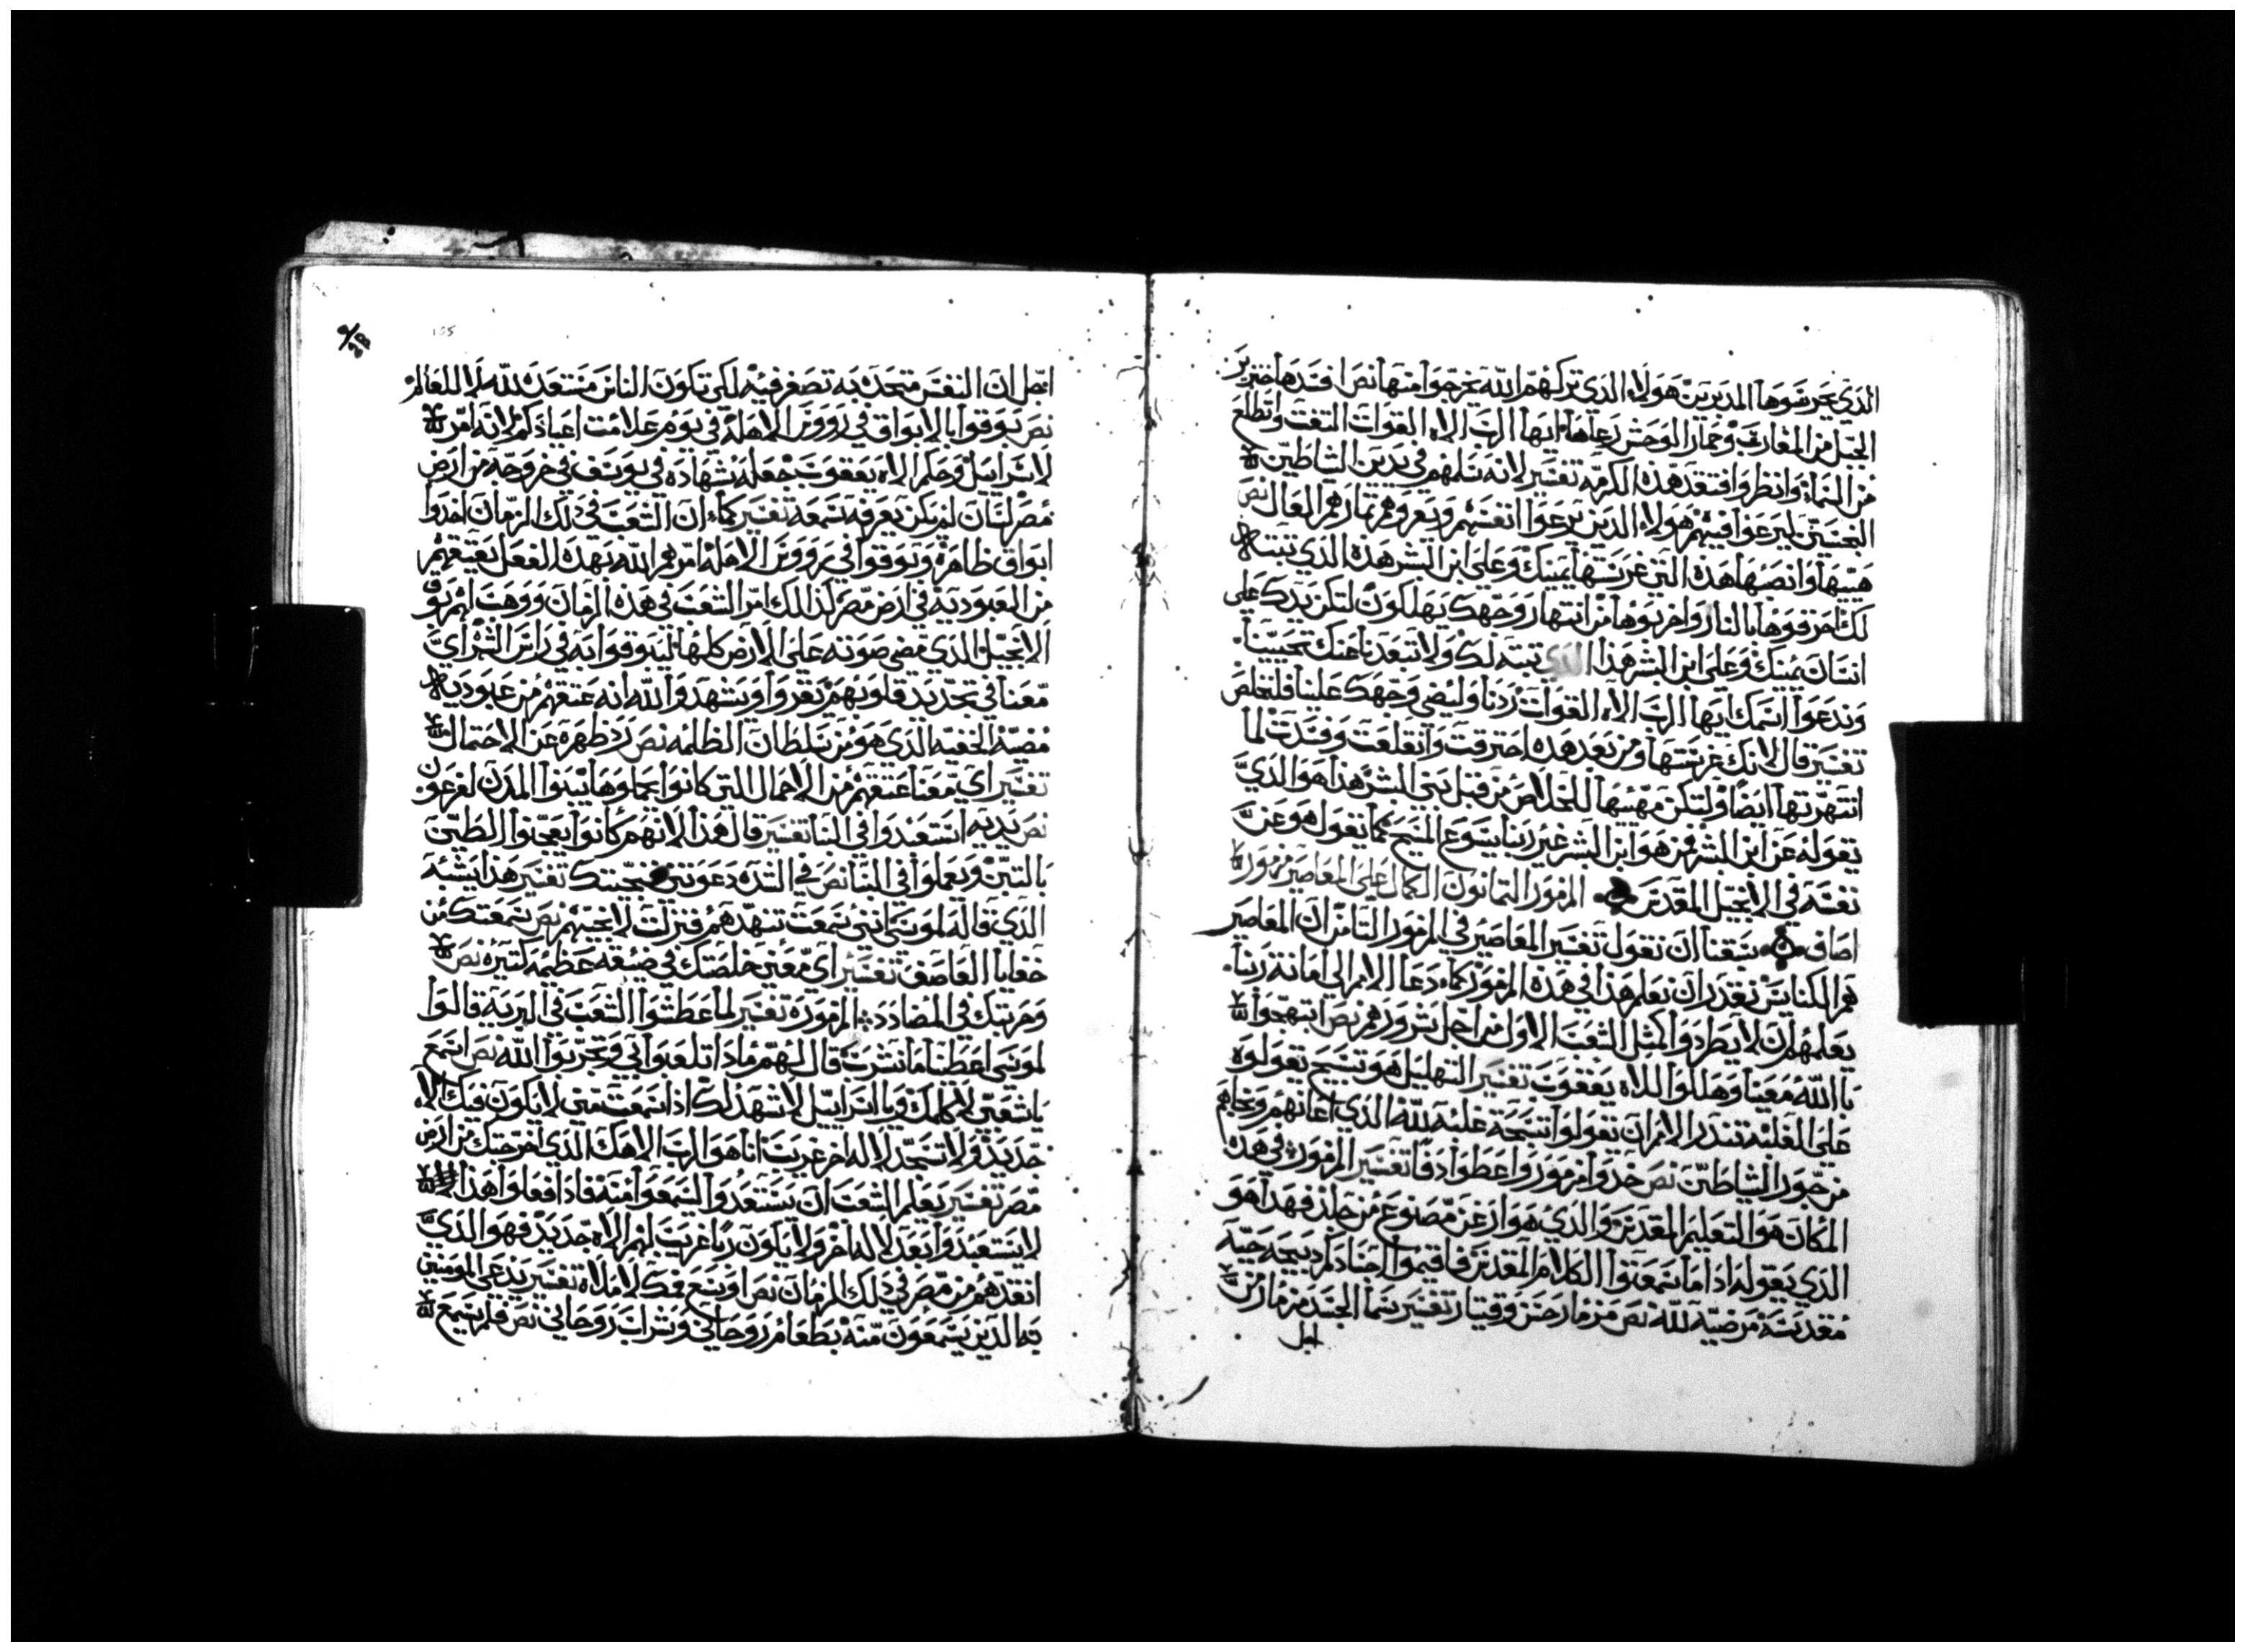 الذي يحرسوها المدبرين هولاء الذي تركهم الله يخرجوا منها نص افسدها خنزير
الجبل من المغارب وحمار الوحش رعاها ايها الرب الاه القوات التفت واطلع
من السماء وانظر وافتقد هذه الكرمه تفسير لانه سلمهم في يدين الشياطين
النجسين ليرعوا فيهم هولاء الذين يرعوا انفسهم ويعروهم ثمارهم المعال نص
هيبها وانصبها هذه التي غرستها يمينك وعلى ابن البشر هذه الذي تبتته
لك احرقوها بالنار واخربوها من انتهار وجهك يهلكون لتكن يدك على
انسان يمينك وعلى ابن البشر هذا الذي تبته لك ولا تبعدنا عنك تحيينا
وندعوا اسمك ايها الرب الاه القوات ردنا وليضي وجهك علينا فلنخلص
تفسير قال لانك غرستها ومن بعد هذه احترقت وانقلعت وفسدت لما
انتهرتها ايضا ولتكن مهيبها للخلاص من قبل بني البشر هذا هو الذي
يقوله عن ابن البشر فمن هو ابن البشر غير ربنا يسوع المسيح كما يقول هو عن
نفسه في الانجيل المقدس المزمور الثمانون الكمال على المعاصر مزمور لا
اصاف سبقنا ان نقول تفسير المعاصير في المزمور الثامن ان المعاصر
هم الكنايس نقدر ان نعلم هذا في هذه المزمور كما دعا الامم الى امانة ربنا
يعلمهم ان لا يطردوا كمثل الشعب الاول من اجل شرورهم نص ابتهجوا
بالله معينا وهللوا للاه يعقوب تفسير التهليل هو تسبيح يقولوه
على الغلبه تنذر الامم ان يقولوا تسبحة غلبه لله الذي اعانهم ونجاهم
من جور الشياطين نص خدوا مزمور واعطوا دفا تفسير المزمور في هذه
المكان هو التعليم المقدس والذي هو ارغن مصنوع من جلد فهذا هو
الذي يقوله اذا ما سمعتوا الكلام المقدس فاقيموا اجسادكم دبيحه حيه
مقدسه مرضيه لله نص مزمار حسن وقيتار تفسير سما الجسد مزمار من
اجل
اجل ان النفس متحده به تصغر فيه لكي تكون الناس مستعده لله لا للعالم
نص بوقوا بالابواق في رووس الاهله في يوم علامت اعيادكم لانه امر
لاسراييل وحكم الاه يعقوب جعله شهاده في يوسف في خروجه من ارض
مصر لسان لم يكن يعرفه سمعه تفسير كما ان الشعب في دلك الزمان اخدوا
ابواق ظاهره وبوقوا في رووس الاهله امرهم الله بهده الفعل يعتقهم
من العبوديه في ارض مصر لذالك امر الشعب في هذه الزمان ووهب لهم بوق
الانجيل الذي مضى صوته على الارض كلها ليبوقوا به في راس الشهر اي
معنا في تجديد قلوبهم يقروا ويشهدوا لله انه عتقهم من عبودية
مصر الخفيه الذي هو من سلطان الظلمه نص رد ظهره عن الاحتمال
تفسير اي معنا عتقهم من الاحمال التي كانوا يحملوها يبنوا المدن لفرعون
نص يديه استعبدوا في البنا تفسير قال هذا لانهم كانوا يعجنوا الطين
بالتبن ويعملوا في البنا نص في الشده دعوتني فنجيتك تفسير هذا يشبه
الذي قاله لموسى انني سمعت تنهدهم فنزلت لانجيهم نص سمعتك من
خفايا العاصف تفسير اي معنى خلصتك في ضيقه عظيمه كتيره نص
وجربتك في المضادد المزموره تفسير لما عطشوا الشعب في البريه قالوا
لموسى اعطينا ما نشرب قال لهم ماذا تلعبوا بي وتجربوا الله نص اسمع
يا شعبي لاكلمك ويا اسراييل لاشهد لك اذا سمعت مني لا يكون فيك الاه
جديد ولا تسجد لاله اخر غريب انا هو الرب الاهك الذي اخرجتك من ارض
مصر تفسير يعلم الشعب ان يستعدوا ليسمعوا منه فاذا فعلوا هذا
لا يستعبدوا بعد لاله اخر ولا يكون ربا غريب لهم الاه جديد فهو الذي
انقدهم من مصر في دلك الزمان نص اوسع فمك لاملاه تفسير يدعى المومنين
به الذين يسمعون منه بطعام روحاني وشراب روحاني نص فلم يسمع